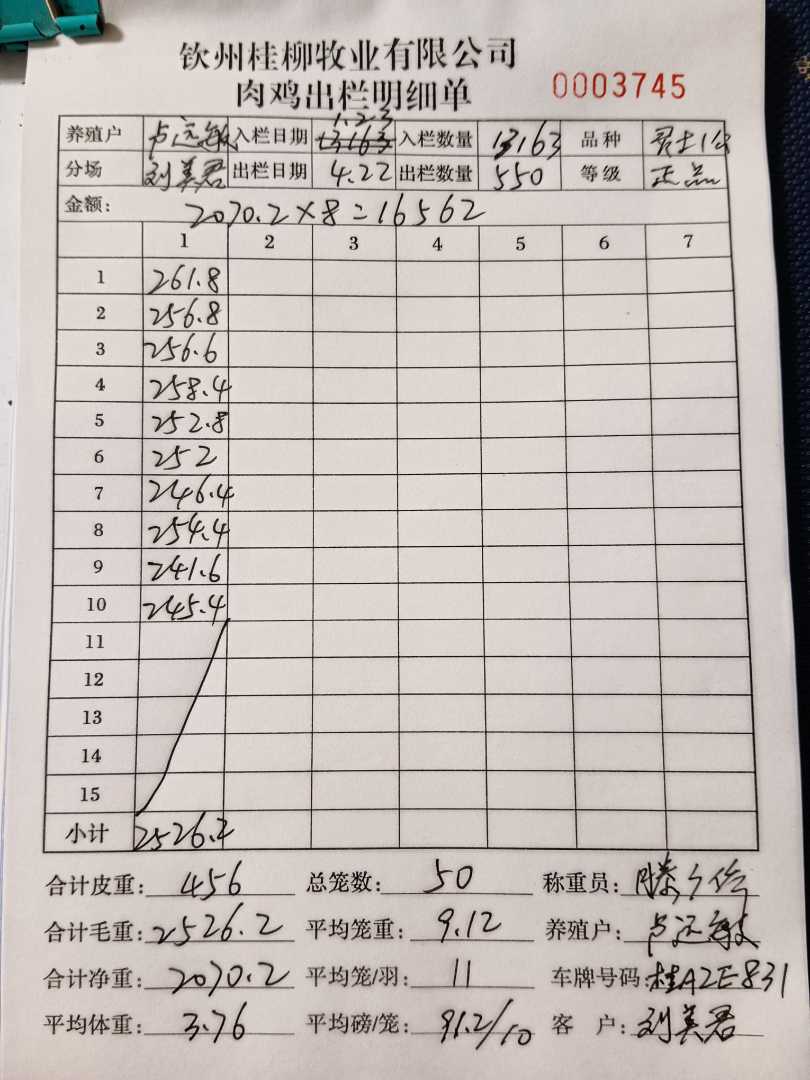 钦州桂柳牧业有限公司
肉鸡出栏明细单 0003745
养殖户 卢远敏 入栏日期 1.23 入栏数量 13163 品种
分场 刘美君 出栏日期 4.22 出栏数量 550 等级 正品
金额: 2070.2×8=16562
1 2 3 4 5 6 7
1 261.8
2 256.8
3 256.6
4 258.4
5 252.8
6 252
7 246.4
8 254.4
9 241.6
10 245.4
11
12
13
14
15
小计 2526.2
合计皮重: 456 总笼数: 50 称重员:
合计毛重: 2526.2 平均笼重: 9.12 养殖户: 卢远敏
合计净重: 2070.2 平均笼/羽: 11 车牌号码: 桂A2E831
平均体重: 3.76 平均磅/笼: 91.2/10 客 户: 刘美君